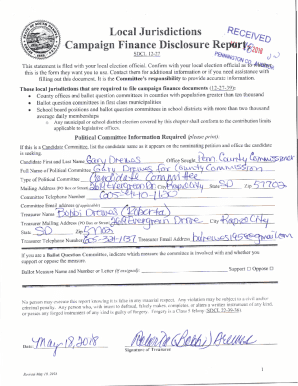 Local Jurisdictions
Campaign Finance Disclosure Report
SDCL 12-27
RECEIVED
2018
PENNINGTON CO.
This statement is filed with your local election official. Confirm with your local election official as to
this is the form they want you to use. Contact them for additional information or if you need assistance with
filling out this document. It is the Committee's responsibility to provide accurate information.
Those local jurisdictions that are required to file campaign finance documents (12-27-39):
• County offices and ballot question committees in counties with population greater than ten thousand
• Ballot question committees in first class municipalities
• School board positions and ballot question committees in school districts with more than two thousand
average daily memberships
Any municipal or school district election covered by this chapter shall conform to the contribution limits
applicable to legislative offices.
Political Committee Information Required (please print):
If this is a Candidate Committee, list the candidate name as it appears on the nominating petition and office the candidate
is seeking.
Candidate First and Last Name Gary Drews Office Sought Penn County Commissioner
Full Name of Political Committee Gary Drews for County Commission
Type of Political Committee Candidate Committee
Mailing Address 3619 Evergreen Dr City Rapid City State SD Zip 57702
Committee Telephone Number 605-
Committee Email address (if applicable)
Treasurer Name Bobbi Drews (Roberta)
Treasurer Mailing Address 3619 Evergreen Drive City Rapid City
State SD Zip 57702
Treasurer Telephone Number Treasurer Email Address
If you are a Ballot Question Committee, indicate which measure the committee is involved with and whether you
support or oppose the measure.
Ballot Measure Name and Number or Letter (if assigned) Support Oppose
No person may execute this report knowing it is false in any material respect. Any violation may be subject to a civil and/or
criminal penalty. Any person who, with intent to defraud, falsely makes, completes, or alters a written instrument of any kind,
or passes any forged instrument of any kind is guilty of forgery. Forgery is a Class 5 felony (SDCL 22-39-36)
Date May 18, 2018
Signature of Treasurer
1